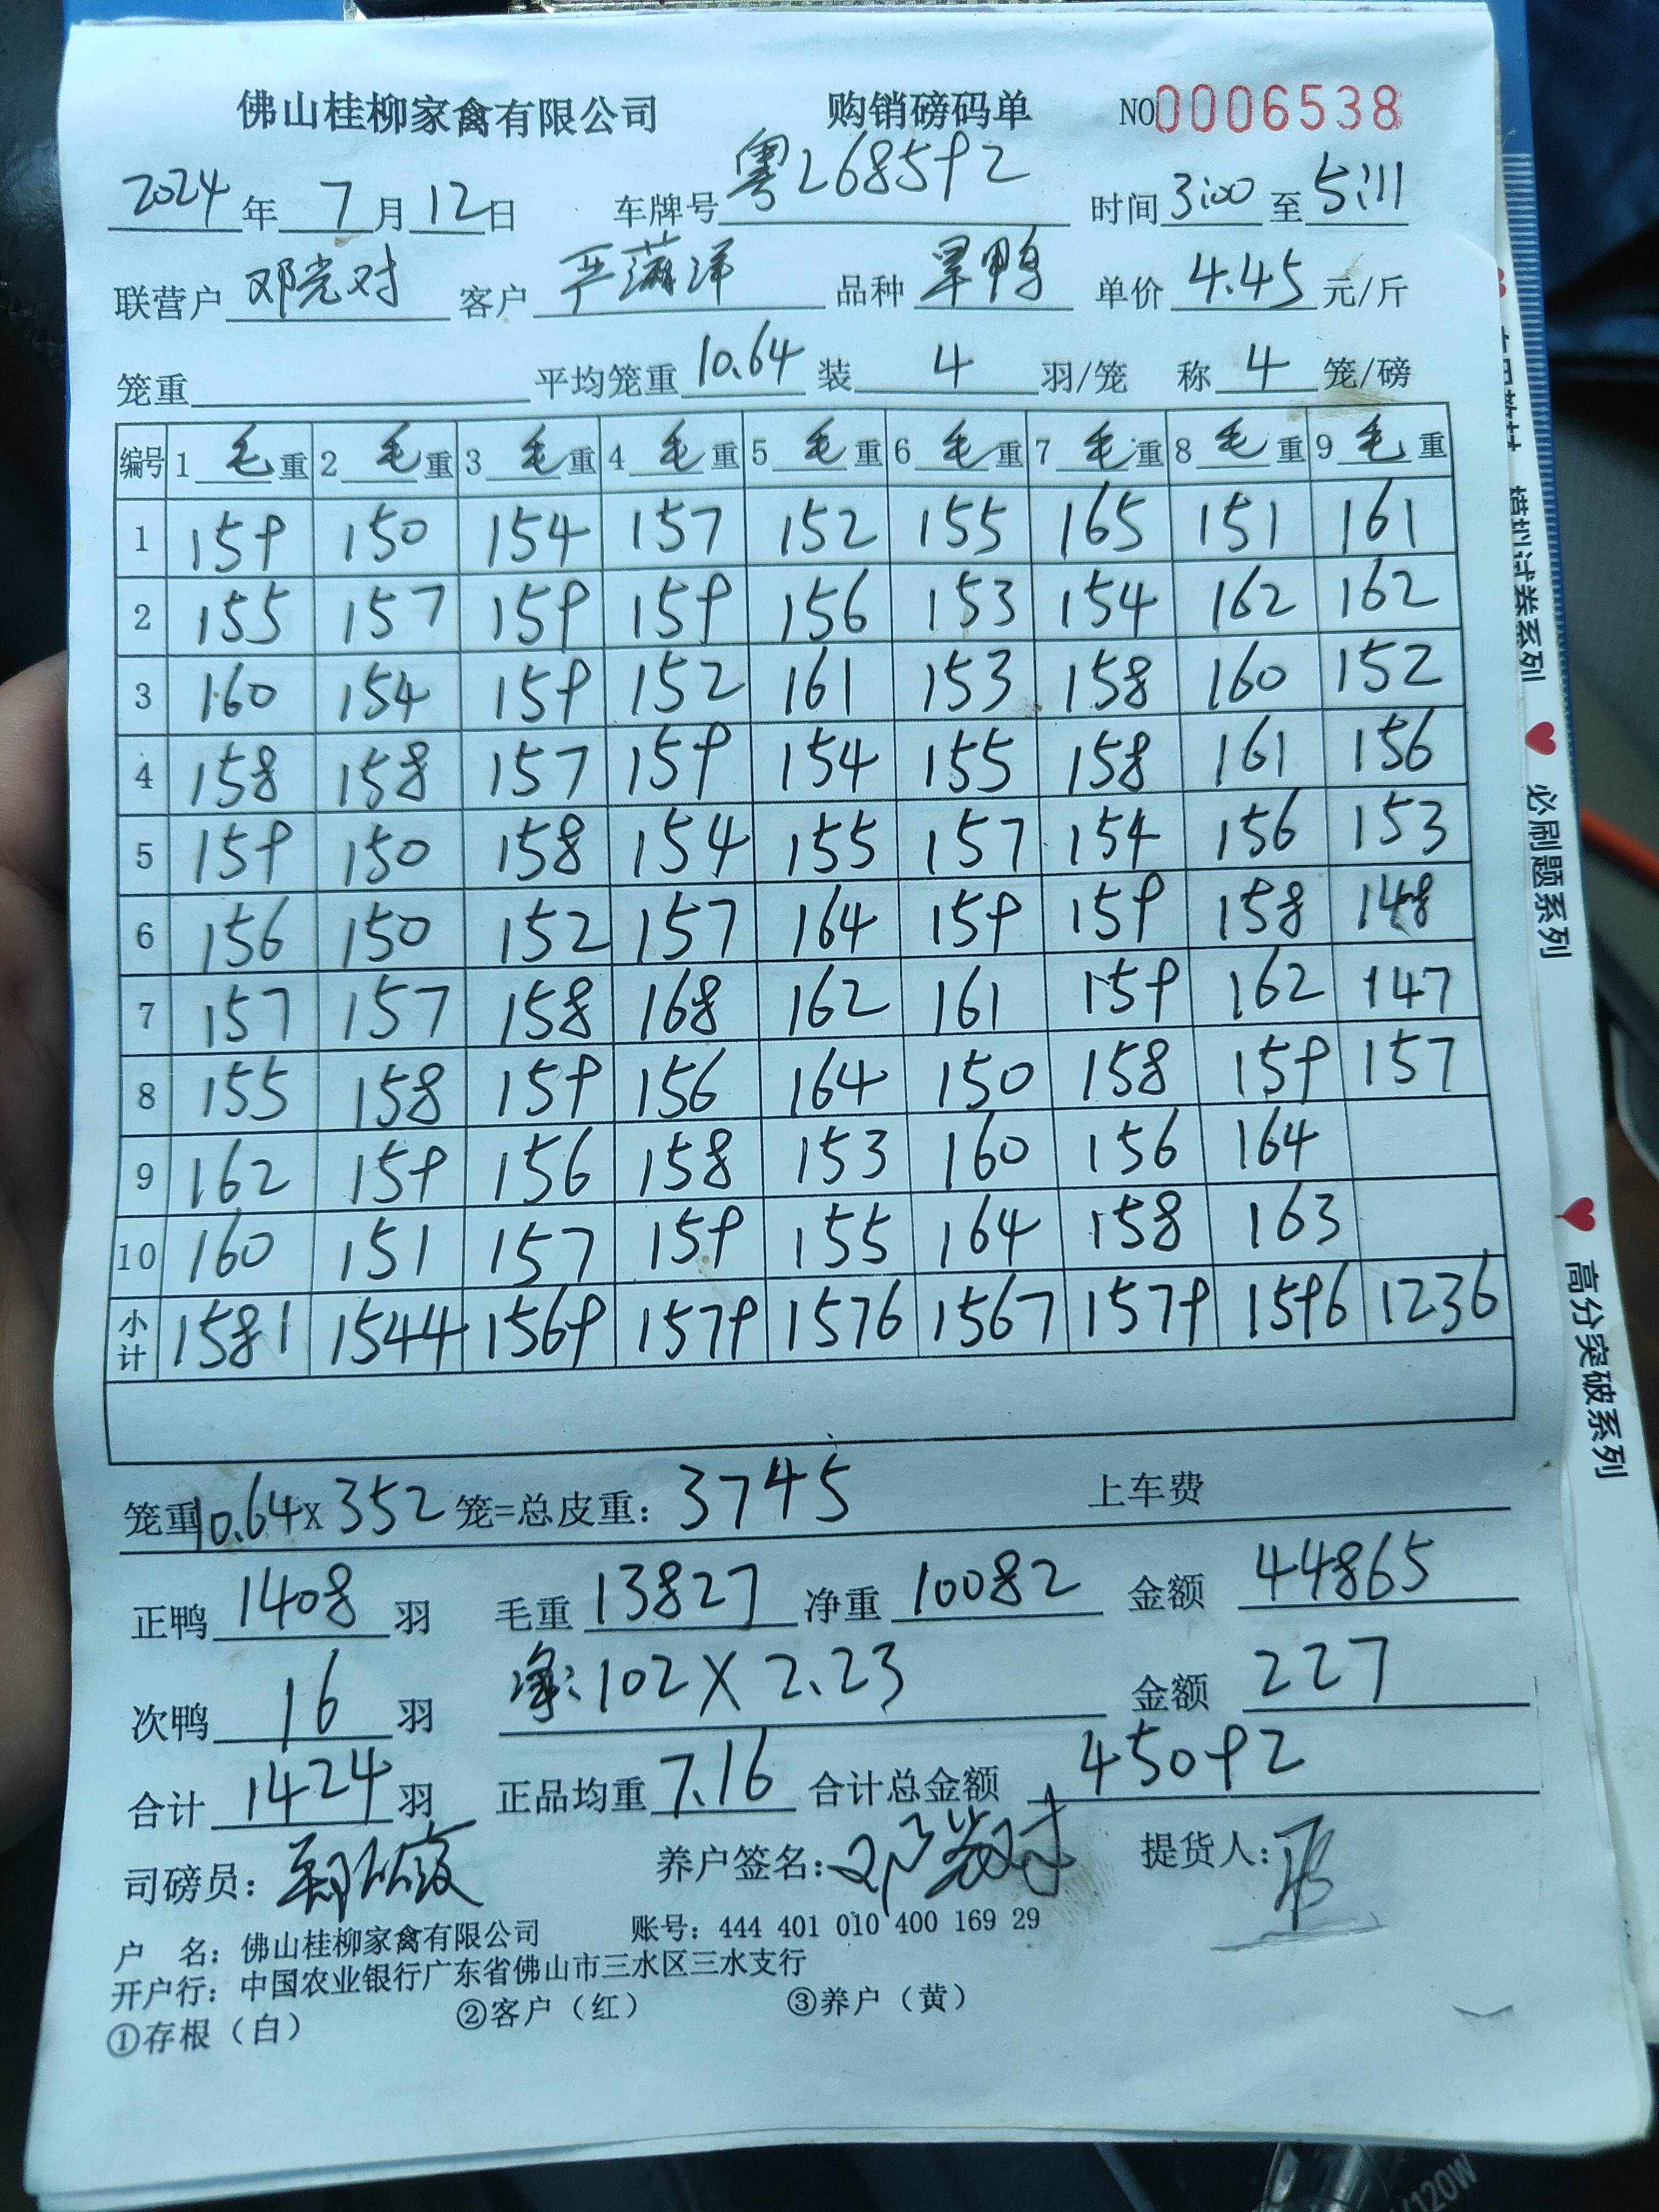 佛山桂柳家禽有限公司 购销磅码单 NO0006538
2024年 7月12日 车牌号 粤L68592 时间 3:00 至 5:11
联营户 邓党对 客户 严 洋 品种 旱鸭 单价 4.45 元/斤
笼重 平均笼重 10.64 装 4 羽/笼 称 4 笼/磅
编号 1 毛重 2 毛重 3 毛重 4 毛重 5 毛重 6 毛重 7 毛重 8 毛重 9 毛重
1 159 150 154 157 152 155 165 151 161
2 155 157 159 159 156 153 154 162 162
3 160 154 159 152 161 153 158 160 152
4 158 158 157 159 154 155 158 161 156
5 159 150 158 154 155 157 154 156 153
6 156 150 152 157 164 159 159 158 148
7 157 157 158 168 162 161 159 162 147
8 155 158 159 156 164 150 158 159 157
9 162 159 156 158 153 160 156 164
10 160 151 157 159 155 164 158 163
小计 1581 1544 1569 1579 1576 1567 1579 1596 1236
笼重10.64X352笼=总皮重：3745 上车费
正鸭 1408 羽 毛重 13827 净重 10082 金额 44865
次鸭 16 羽 净：102X2.23 金额 227
合计 1424 羽 正品均重 7.16 合计总金额 45092
司磅员： 养户签名： 提货人：
户 名：佛山桂柳家禽有限公司 账号：444 401 010 400 169 29
开户行：中国农业银行广东省佛山市三水区三水支行
①存根（白） ②客户（红） ③养户（黄）
必刷题系列
高分突破系列
120W